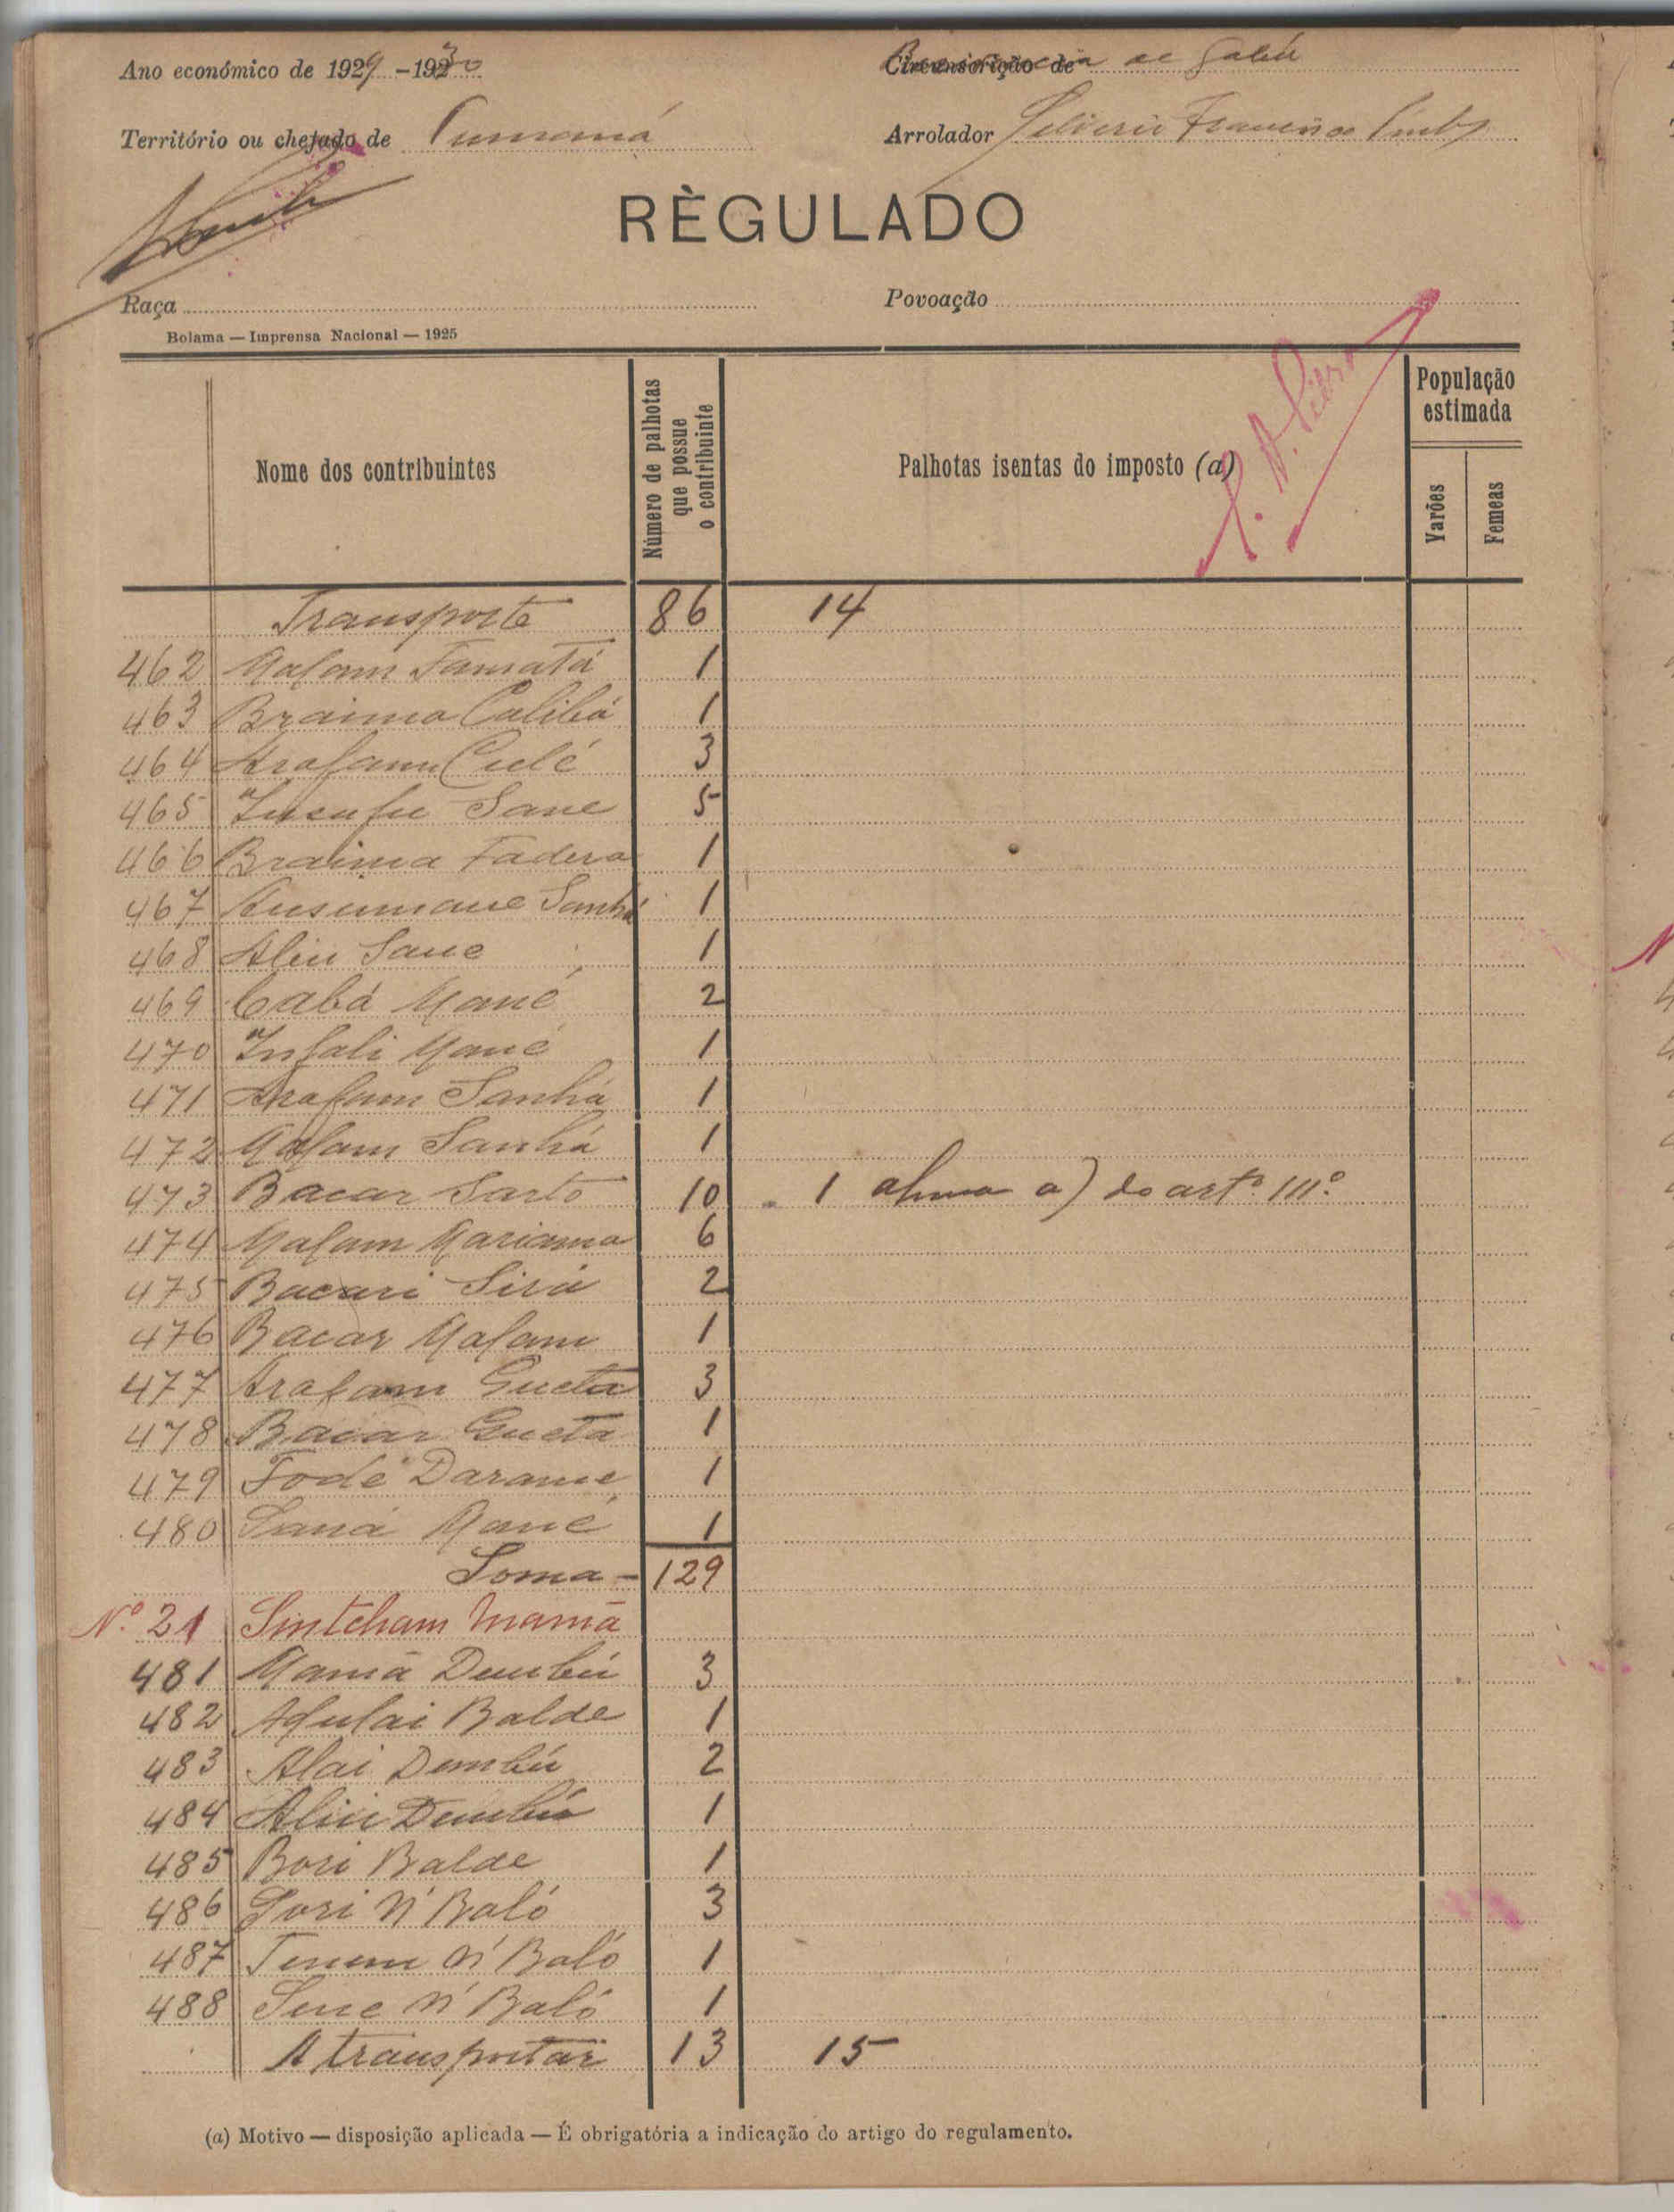 Ano económico de 1929 -1930
Circunscrição de de Gabú
Território ou chefado de Cumaná
Arrolador
RÈGULADO
Raça
Povoação
Bolama — Imprensa Nacional — 1925
Nome dos contribuintes
Número de palhotas que possue o contribuinte
Palhotas isentas do imposto (a)
População estimada
Varões
Femeas
Transporte 86 14
462 Malam Tamatá 1
463 Braima Calibá 1
464 Arafam Culé 3
465 Jusufu Sane 5
466 Braima Fadera 1
467 Ansumane Sanhá 1
468 Aliu Sane 1
469 Cabá Mané 2
470 Infali Mané 1
471 Arafam Sanhá 1
472 Malam Sanhá 1
473 Bacar Sarto 10 1 alinea a) do artº 111º
474 Malam Mariama 6
475 Bacari Sirá 2
476 Bacar Malam 1
477 Arafam Gueta 3
478 Bacar Gueta 1
479 Fodé Darame 1
480 Saná Mané 1
Soma - 129
Nº 21 Sintcham Mamã
481 Mamã Dembú 3
482 Adulai Balde 1
483 Alai Dembú 2
484 Aliu Dembú 1
485 Bori Balde 1
486 Sori N'Baló 3
487 Tenem N'Baló 1
488 Sene N'Baló 1
A transportar 13 15
(a) Motivo — disposição aplicada — É obrigatória a indicação do artigo do regulamento.